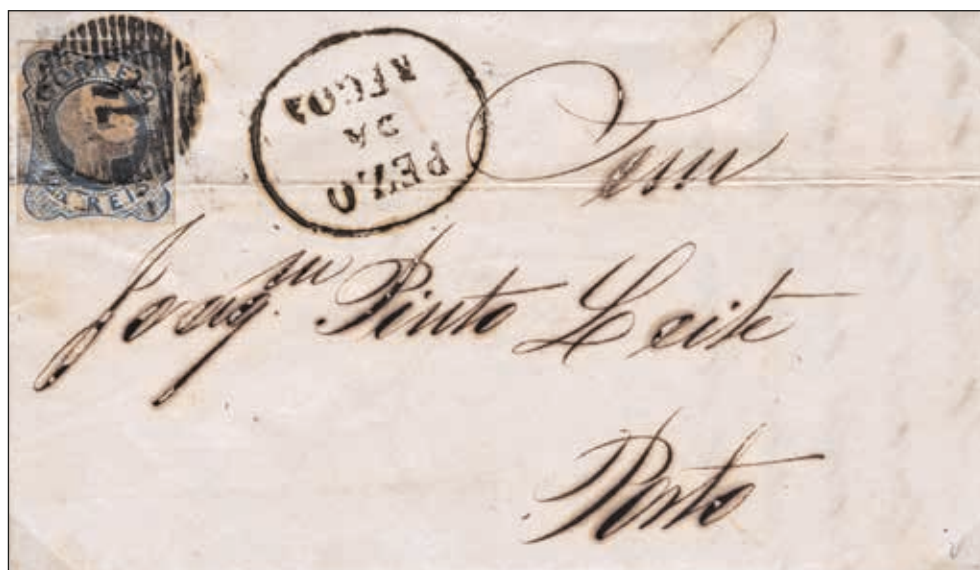 CORREIO
REIS
PEZO
DA
REGOA
Joaq.m Pinto Leite
Porto